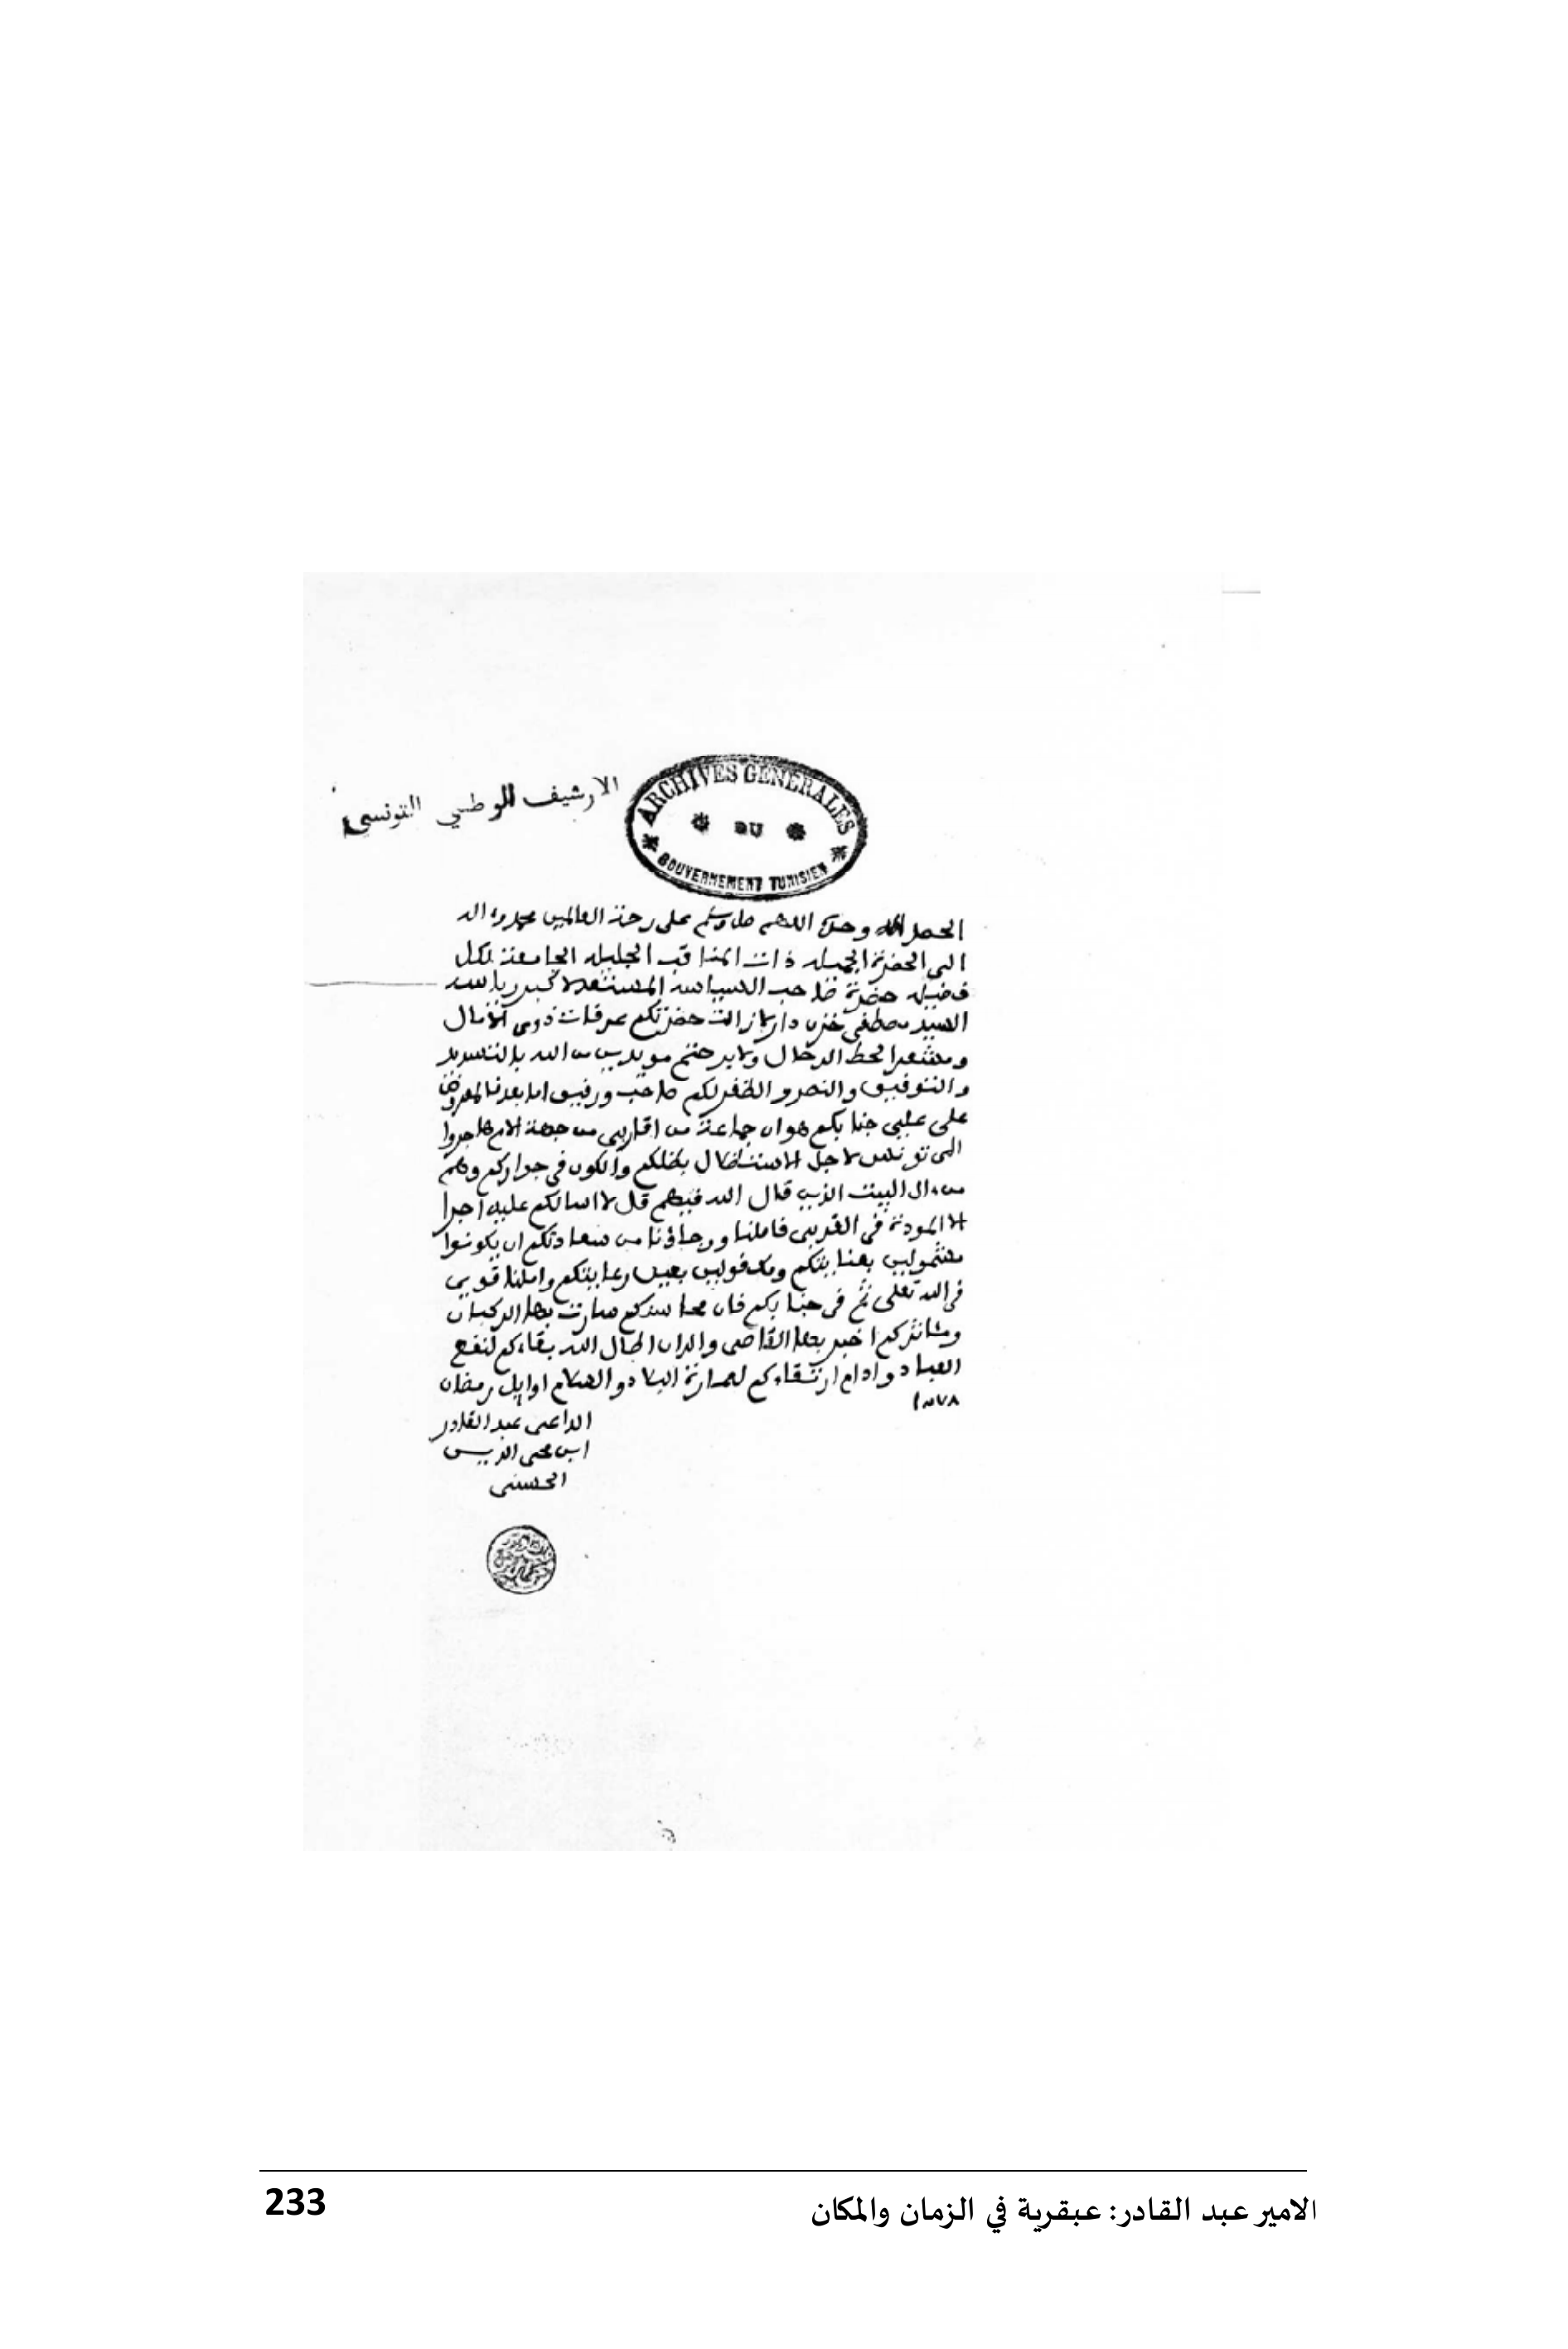 ARCHIVES GENERALES
DU
GOUVERNEMENT TUNISIEN
الارشيف الوطني التونسي
الحمد لله وحده اللهم صل وسلم على رحمة العالمين محمد وءاله
الى الحضرة الجميله ذات المناقب الجليله الجامعة لكل
فضيله حضرة صاحب السياسة
السيد مصطفى خزندار لازالت حضرتكم عرفات ذوى الآمال
ومشعرا لحط الرحال ولا برحتم مويدين من الله بالتسديد
والتوفيق والنصر والظفر لكم صاحب ورفيق اما بعد فالمعروض
على على جنابكم هو ان جماعة من اقاربى من جهة الام هاجروا
الى تونس لاجل الاستظلال بظلكم والكون فى جواركم وهم
من ءال البيت الذين قال الله فيهم قل لا اسالكم عليه اجرا
الا المودة فى القربى فاملنا ورجاؤنا من سعادتكم ان يكونوا
مشمولين بعنايتكم ومكفولين بعين رعايتكم واملنا قوى
فى الله تعلى ثم فى جنابكم فان محاسنكم سارت بها الركبان
ومئاثركم اخبر بها القاصى والدان اطال الله بقاءكم لنفع
العباد وادام ارتقاءكم لعمارة البلاد والسلام اوايل رمضان
١٢٧٨
الداعى عبد القادر
ابن محى الدين
الحسنى
الامير عبد القادر: عبقرية في الزمان والمكان
233